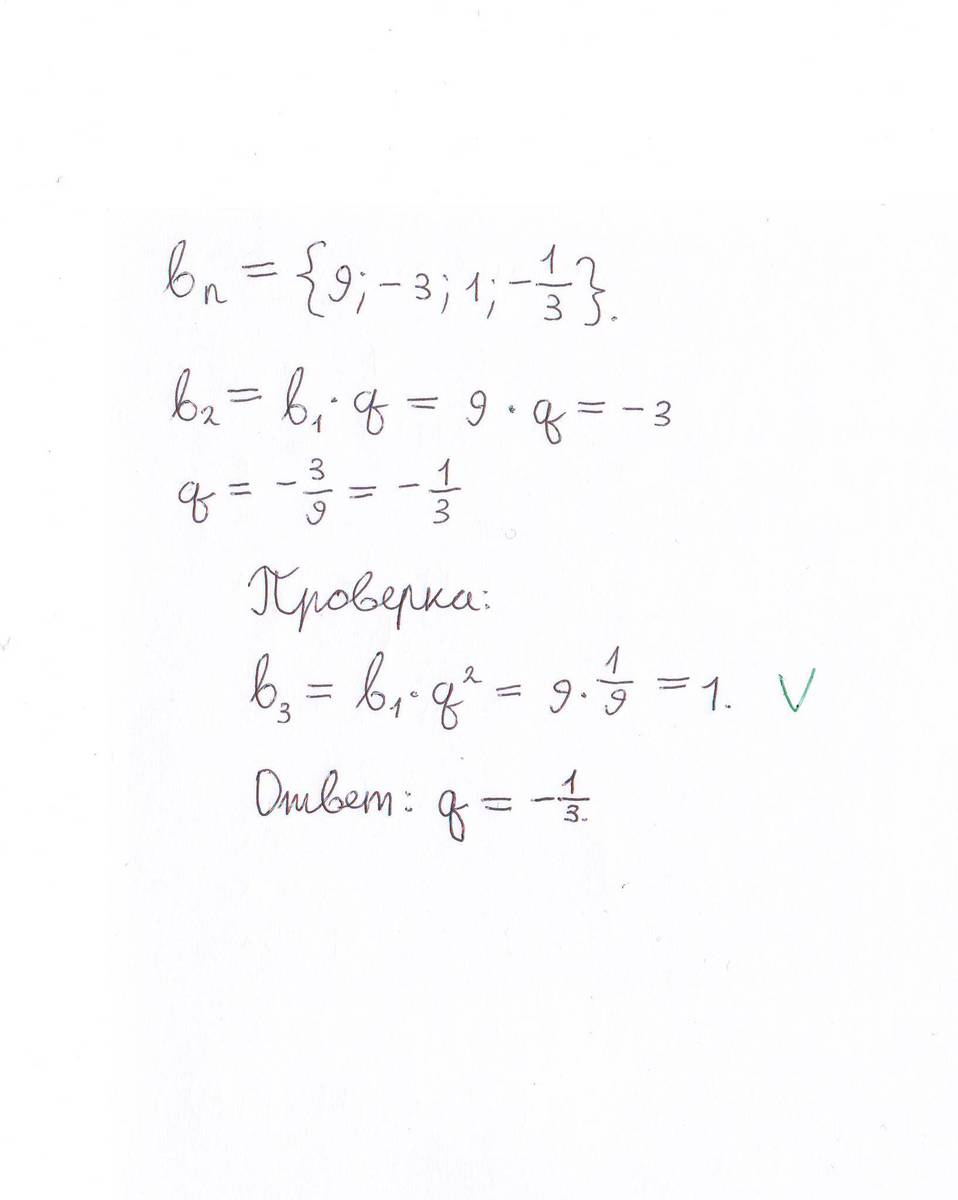 bₙ = {9; -3; 1; -1/3}.
b₂ = b₁ · q = 9 · q = -3
q = -3/9 = -1/3
Проверка:
b₃ = b₁ · q² = 9 · 1/9 = 1. V
Ответ: q = -1/3.